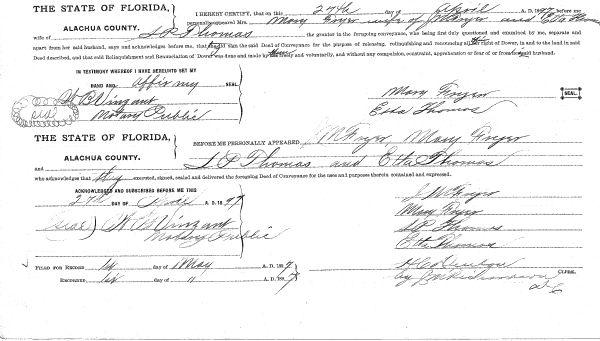 THE STATE OF FLORIDA,
ALACHUA COUNTY.
I HEREBY CERTIFY, that on this 27th day of April A. D. 1897 before me
personally appeared Mrs. Mary Fryer wife of J M Fryer and Etta Thomas
wife of S P Thomas the grantor in the foregoing conveyance, who being first duly questioned and examined by me, separate and
apart from her said husband, says and acknowledges before me, that they sign the said Deed of Conveyance for the purpose of releasing, relinquishing and renouncing all the right of Dower, in and to the land in said
Deed described, and that said Relinquishment and Renunciation of Dower was done and made by them freely and voluntarily, and without any compulsion, constraint, apprehension or fear of or from said husband
IN TESTIMONY WHEREOF I HAVE HEREUNTO SET MY
HAND AND affix my SEAL
W B Vinzant
Notary Public
Mary Fryer
Etta Thomas
SEAL.
THE STATE OF FLORIDA,
ALACHUA COUNTY.
BEFORE ME PERSONALLY APPEARED, J M Fryer, Mary Fryer
S P Thomas and Etta Thomas
who acknowledges that they executed, signed, sealed and delivered the foregoing Deed of Conveyance for the uses and purposes therein contained and expressed.
ACKNOWLEDGED AND SUBSCRIBED BEFORE ME THIS
27th DAY OF April A. D. 1897
(seal) W B Vinzant
Notary Public
J M Fryer
Mary Fryer
S P Thomas
Etta Thomas
FILED FOR RECORD 1st day of May A. D. 1897
RECORDED 1st day of " A. D. 1897
CLERK.
by
D C